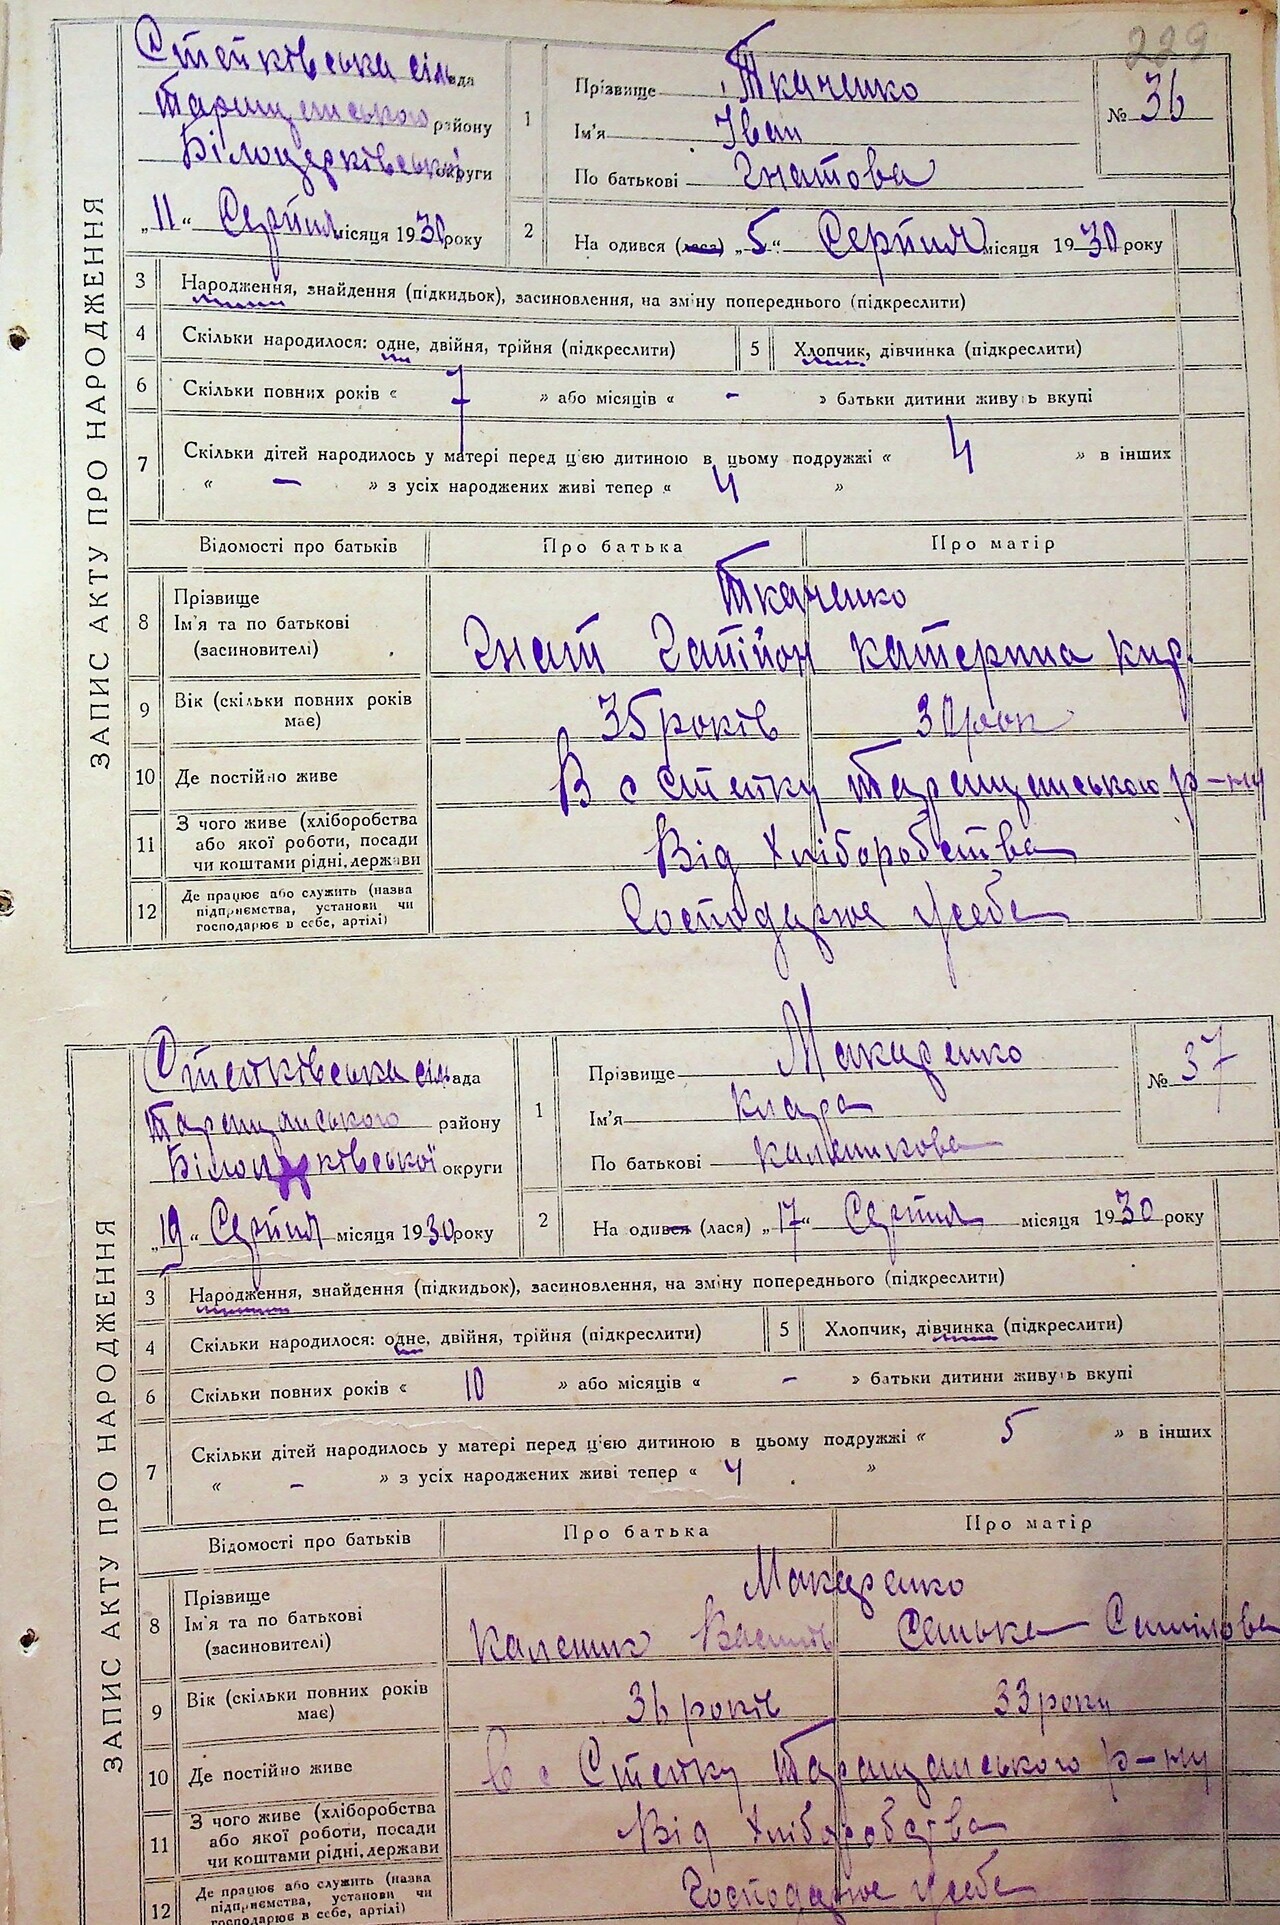 229
ЗАПИС АКТУ ПРО НАРОДЖЕННЯ
Стейківська сільрада
Таращанського району
Білоцерківської округи
„11“ Серпня місяця 1930 року
1 Прізвище Ткаченко
Ім'я Іван
По батькові Гнатова
№ 36
2 На одився (лася) „5“ Серпня місяця 1930 року
3 Народження, знайдення (підкидьок), засиновлення, на зміну попереднього (підкреслити)
4 Скільки народилося: одне, двійня, трійня (підкреслити) 5 Хлопчик, дівчинка (підкреслити)
6 Скільки повних років « 7 » або місяців « - » батьки дитини живуть вкупі
7 Скільки дітей народилось у матері перед цією дитиною в цьому подружжі « 4 » в інших
« - » з усіх народжених живі тепер « 4 »
Відомості про батьків Про батька Про матір
8 Прізвище
Ім'я та по батькові
(засиновителі)
Ткаченко
Гнат Катерина Кир.
9 Вік (скільки повних років має) 35 років 30 рок
10 Де постійно живе В с Стейку Таращанського р-ну
11 З чого живе (хліборобства
або якої роботи, посади
чи коштами рідні, держави
Від хліборобства
12 Де працює або служить (назва
підприємства, установи чи
господарює в себе, артілі)
Господарює у себе
ЗАПИС АКТУ ПРО НАРОДЖЕННЯ
Стейківська сільрада
Таращанського району
Білоцерківської округи
„19“ Серпня місяця 1930 року
1 Прізвище Макаренко
Ім'я Клара
По батькові Каленикова
№ 37
2 На одився (лася) „17“ Серпня місяця 1930 року
3 Народження, знайдення (підкидьок), засиновлення, на зміну попереднього (підкреслити)
4 Скільки народилося: одне, двійня, трійня (підкреслити) 5 Хлопчик, дівчинка (підкреслити)
6 Скільки повних років « 10 » або місяців « - » батьки дитини живуть вкупі
7 Скільки дітей народилось у матері перед цією дитиною в цьому подружжі « 5 » в інших
« - » з усіх народжених живі тепер « 4 »
Відомості про батьків Про батька Про матір
8 Прізвище
Ім'я та по батькові
(засиновителі)
Макаренко
Каленик Васил Санька
9 Вік (скільки повних років має) 36 років 33 роки
10 Де постійно живе В с Стейку Таращанського р-ну
11 З чого живе (хліборобства
або якої роботи, посади
чи коштами рідні, держави
Від хліборобства
12 Де працює або служить (назва
підприємства, установи чи
господарює в себе, артілі)
Господарює у себе